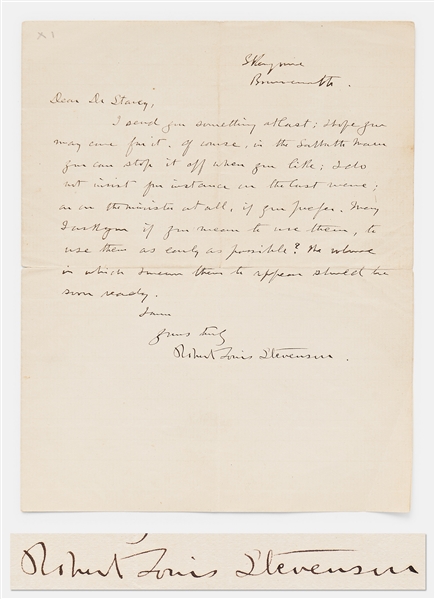 x 1
Skerryvore
Bournemouth.
Dear Dr Starey,
I send you something at last; I hope you
may care for it. Of course, in the Sabbath Morn
you can stop it off when you like; I do
not insist for instance on the last verse;
or on the minister at all, if you prefer. May
I ask you if you mean to use them, to
use them as early as possible? The volume
in which I mean them to appear should be
soon ready.
I am
yours truly
Robert Louis Stevenson.
Robert Louis Stevenson